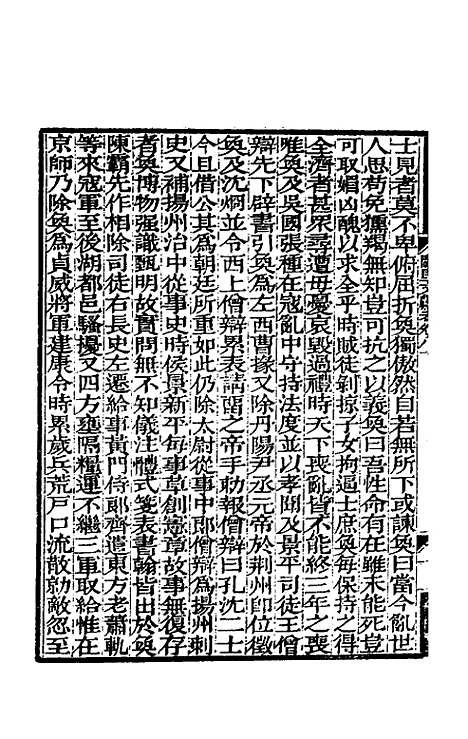 士見者莫不卑俯屈折奐獨傲然自若無所下或諫奐曰當今亂世
人思苟免獯羯無知豈可抗之以義奐曰吾性命有在雖未能死豈
可取媚凶醜以求全乎時賊徒剝掠子女拘逼士庶奐每保持之得
全濟者甚衆尋遭母憂哀毀過禮時天下喪亂皆不能終三年之喪
唯奐及吳國張種在寇亂中守持法度並以孝聞及景平司徒王僧
辯先下辟書引奐爲左西曹掾又除丹陽尹丞元帝於荆州卽位徵
奐及沈炯並令西上僧辯累表請留之帝手勅報僧辯曰孔沈二士
今且借公其爲朝廷所重如此仍除太尉從事中郎僧辯爲揚州刺
史又補揚州治中從事史時侯景新平每事草創憲章故事無復存
者奐博物强識甄明故實問無不知儀注體式箋表書翰皆出於奐
陳霸先作相除司徒右長史左遷給事黃門侍郎齊遣東方老蕭軌
等來寇軍至後湖都邑騷擾又四方壅隔糧運不繼三軍取給唯在
京師乃除奐爲貞威將軍建康令時累歲兵荒戸口流散勍敵忽至